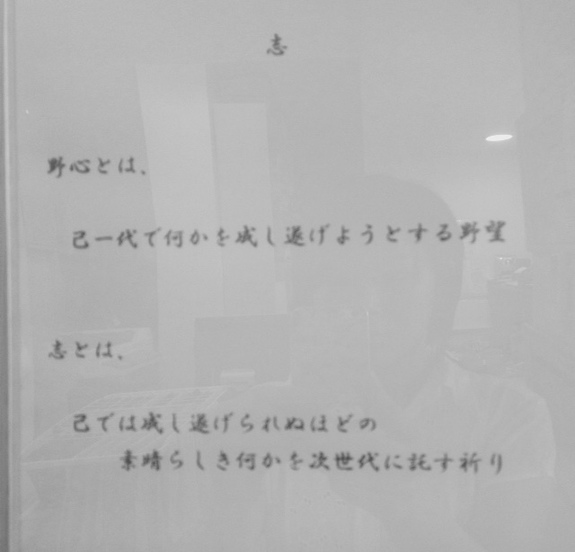 志
野心とは、
己一代で何かを成し遂げようとする野望
志とは、
己では成し遂げられぬほどの
素晴らしき何かを次世代に託す祈り